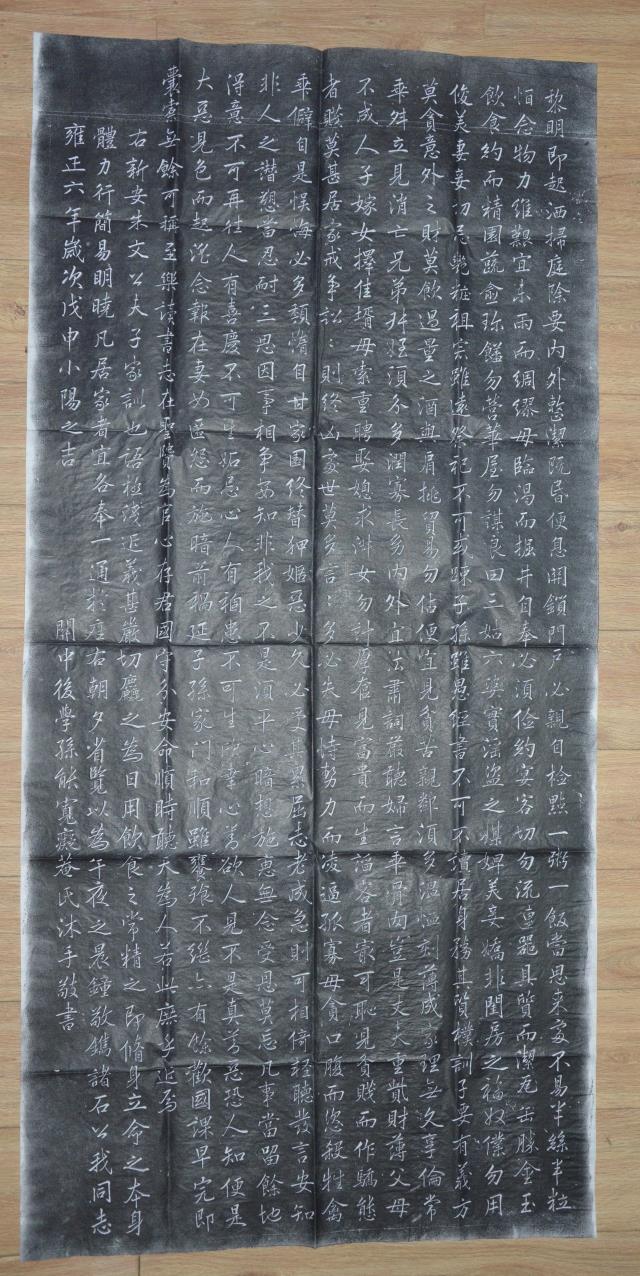 黎明即起洒掃庭除要內外整潔既昏便息關鎖門戶必親自檢點一粥一飯當思來處不易半絲半粒
恒念物力維艱宜未雨而綢繆毋臨渴而掘井自奉必須儉約宴客切勿流連器具質而潔瓦缶勝金玉
飲食約而精園蔬愈珍饈勿營華屋勿謀良田三姑六婆實淫盜之媒婢美妾嬌非閨房之福奴僕勿用
俊美妻妾切忌艷粧祖宗雖遠祭祀不可或踈子孫雖愚經書不可不讀居身務其質樸訓子要有義方
莫貪意外之財莫飲過量之酒與肩挑貿易勿佔便宜見貧苦親鄰須多溫恤刻薄成家理無久享倫常
乖舛立見消亡兄弟叔姪須分多潤寡長幼內外宜法肅詞嚴聽婦言乖骨肉豈是丈夫重貲財薄父母
不成人子嫁女擇佳壻毋索重聘娶媳求淑女勿計厚奩見富貴而生諂容者最可恥見貧賤而作驕態
者賤莫甚居家戒爭訟:則終凶處世莫多言:多必失毋恃勢力而凌逼孤寡毋貪口腹而恣殺牲禽
乖僻自是悮悔必多頹惰自甘家園終替狎嫟惡少久必受其累屈志老成急則可相倚輕聽發言安知
非人之譖愬當忍耐三思因事相爭安知非我之不是須平心暗想施惠無念受恩莫忘凡事當留餘地
得意不可再往人有喜慶不可生妬忌心人有禍患不可生欣幸心善欲人見不是真善惡恐人知便是
大惡見色而起淫念報在妻女匿怨而施暗箭禍延子孫家門和順雖饔飧不繼亦有餘歡國課早完即
囊橐無餘可稱至樂讀書志在聖賢為官心存君國守分安命順時聽天為人若此庶乎近焉
右新安朱文公夫子家訓也語極淺近義甚嚴切麤之為日用飲食之常精之即脩身立命之本身
體力行簡易明曉凡居家者宜各奉一通於座右朝夕省覽以為午夜之晨鐘敬鐫諸石以公我同志
雍正六年歲次戊申小陽之吉
關中後學孫能寬 菴氏沐手敬書